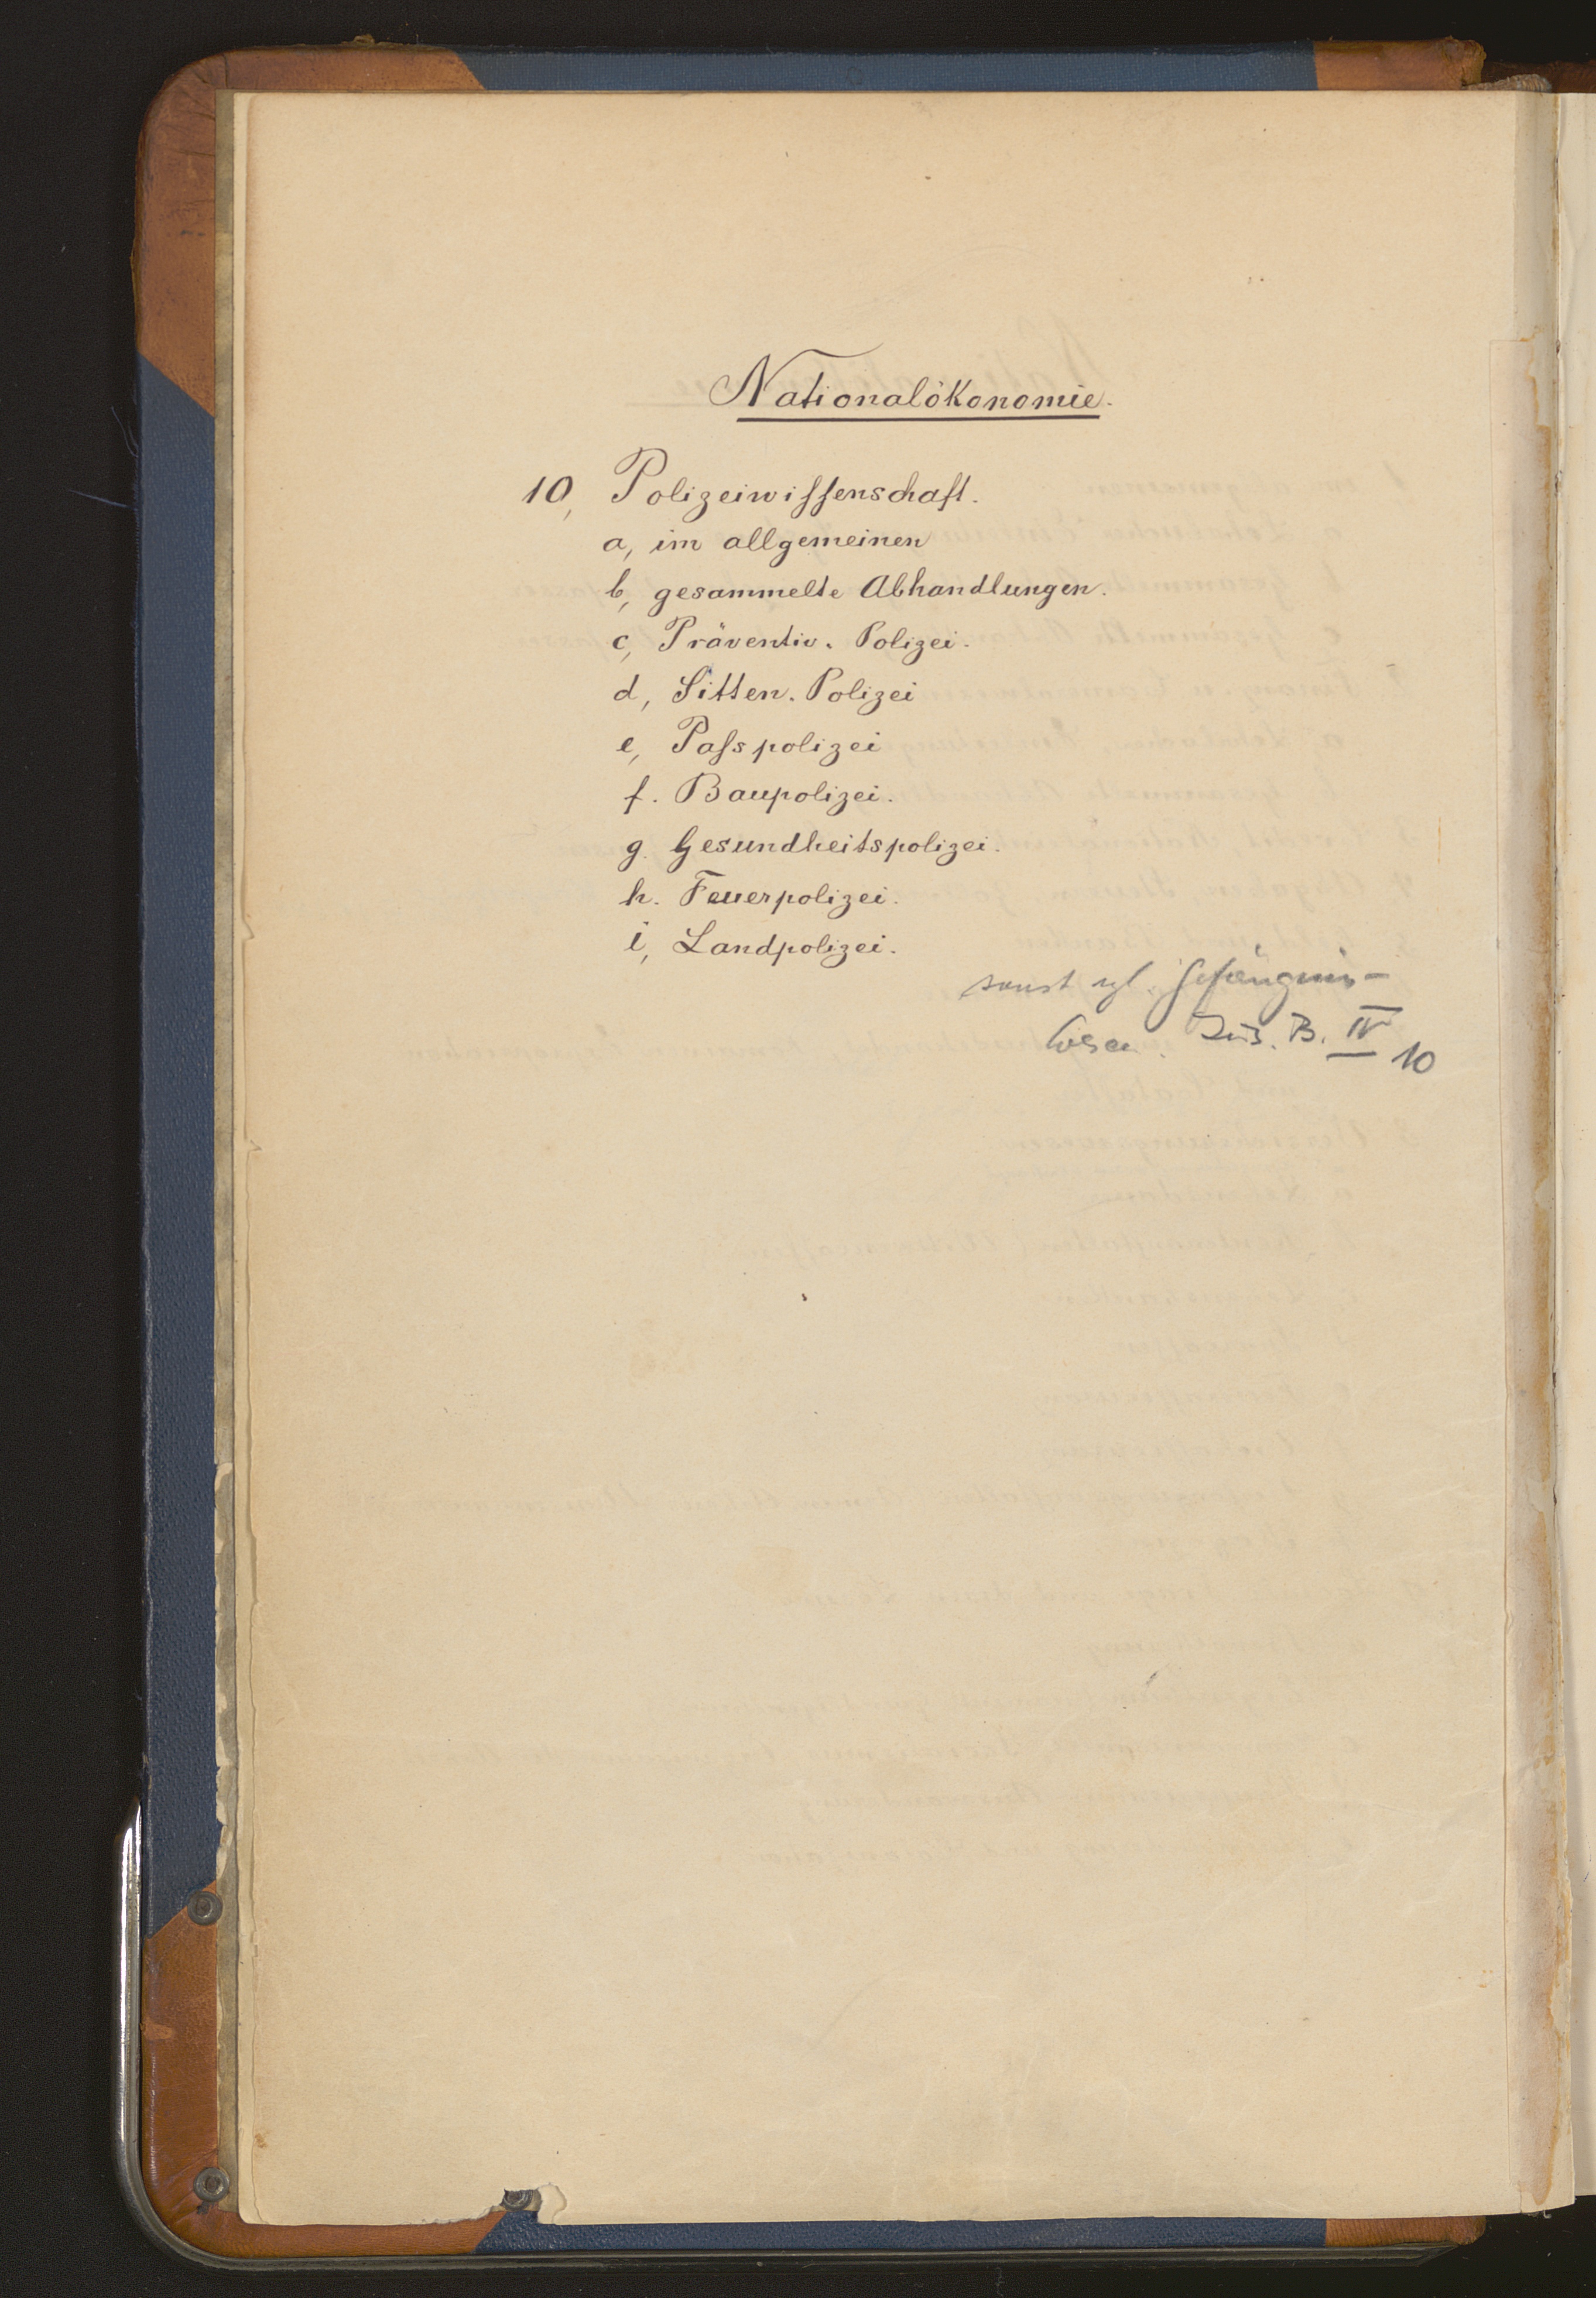 Nationalökonomie.
10, Polizeiwissenschaft.
a, im allgemeinen
b, gesammelte Abhandlungen.
c, Präventiv. Polizei.
d, Sitten. Polizei
e, Passpolizei
f. Baupolizei.
g. Gesundheitspolizei.
h. Feuerpolizei.
i, Landpolizei.
sonst vgl. Gefängnis-
wesen. Jus. B. IV 10